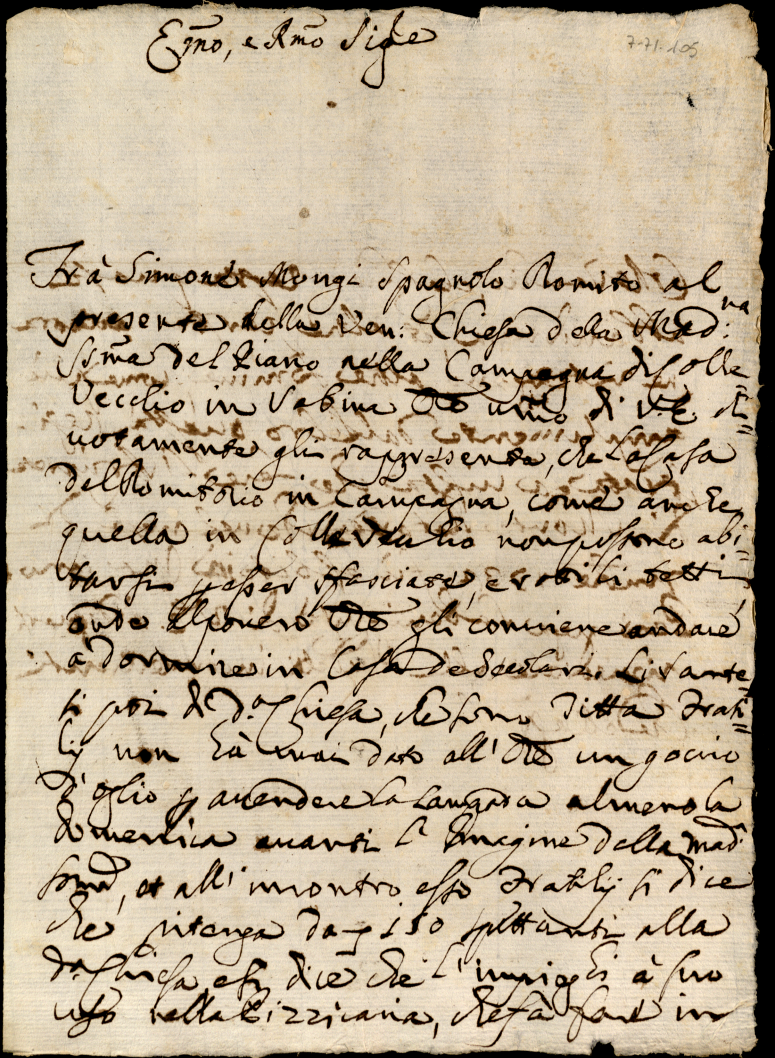 Emo, e Rmo Sigre
7-71-105
Frà Simone Mongi Spagnolo Romito al
presente della Ven: Chiesa della Madna:
Ssma del Piano nella Campagna di Colle
Vecchio in Sabina Ore umo di V.E. de=
votamente gli rappresenta, che la Casa
del Romitorio in Campagna, come anche
quella in Collevecchio non possono abi=
tarsi p esser sfasciate, e rotti li tetti
onde il povero Ore gli conviene andare
a dormire in Casa de Secolari. Li Sante=
si poi di da. Chiesa, che sono Titta Frati=
lij non hà mai dato all' Ore un gocciio
d'oglio p accendere la Lampada almeno la
domenica avanti l' Imagine della Mad
et all' incontro esso Fratilij si dice
che ritenga da 150 spettanti alla
da. Chiesa, e si dice che l' impieghi à suo
uso nella Pizzicaria, che fà fare in